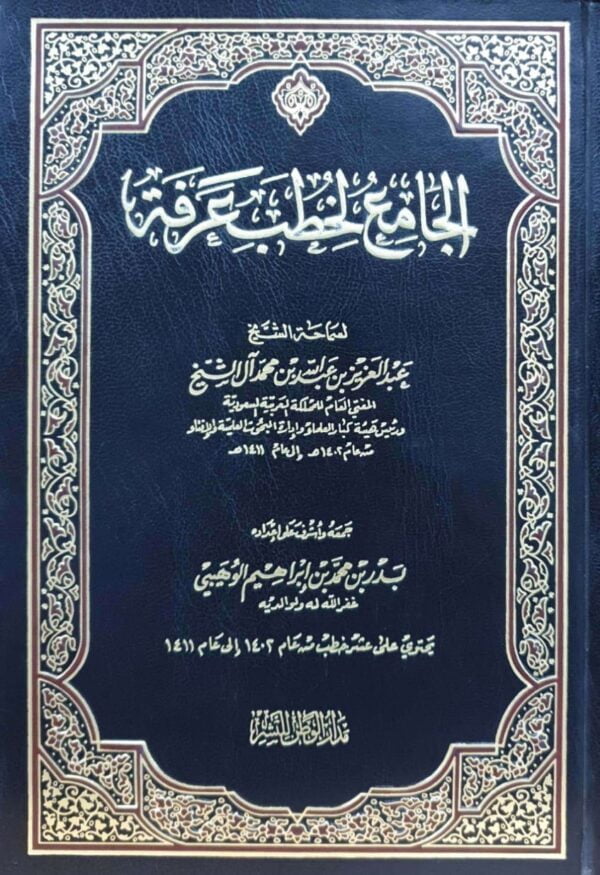 الجامع لخطب عرفة
لسماحة الشيخ
عبد العزيز بن عبد الله بن محمد آل الشيخ
المفتي العام للمملكة العربية السعودية
ورئيس هيئة كبار العلماء وإدارة البحوث العلمية والإفتاء
من عام ١٤٠٢هـ إلى عام ١٤١١هـ
جمعه وأشرف على إعداده
بدر بن محمد بن إبراهيم الوهيبي
غفر الله له ولوالديه
يحتوي على عشر خطب من عام ١٤٠٢ إلى عام ١٤١١
مدار الوطن للنشر